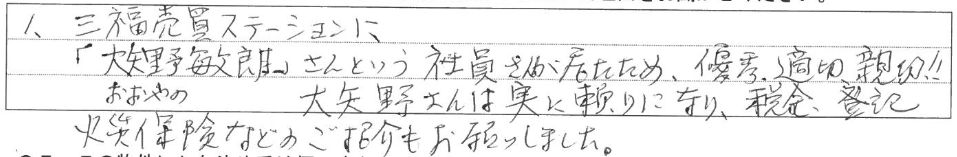 1、三福売買ステーションに、
「大矢野敏朗」さんという社員さんが居たため、優秀、適切、親切!!
おおやの 大矢野さんは実に頼りになり、税金、登記
火災保険などのご紹介もお願いしました。